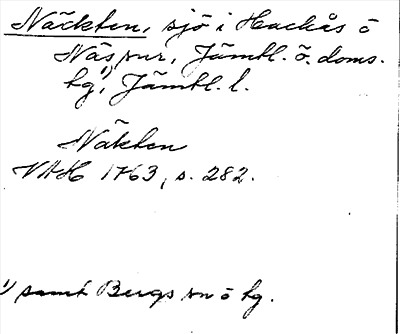 Näckten, sjö i Hackås o
Näs snr, Jämtl. ö. doms.
hg¹), Jämtl. l.
Näkten
VAH 1763, s. 282.
¹) samt Bergs sn o hg.